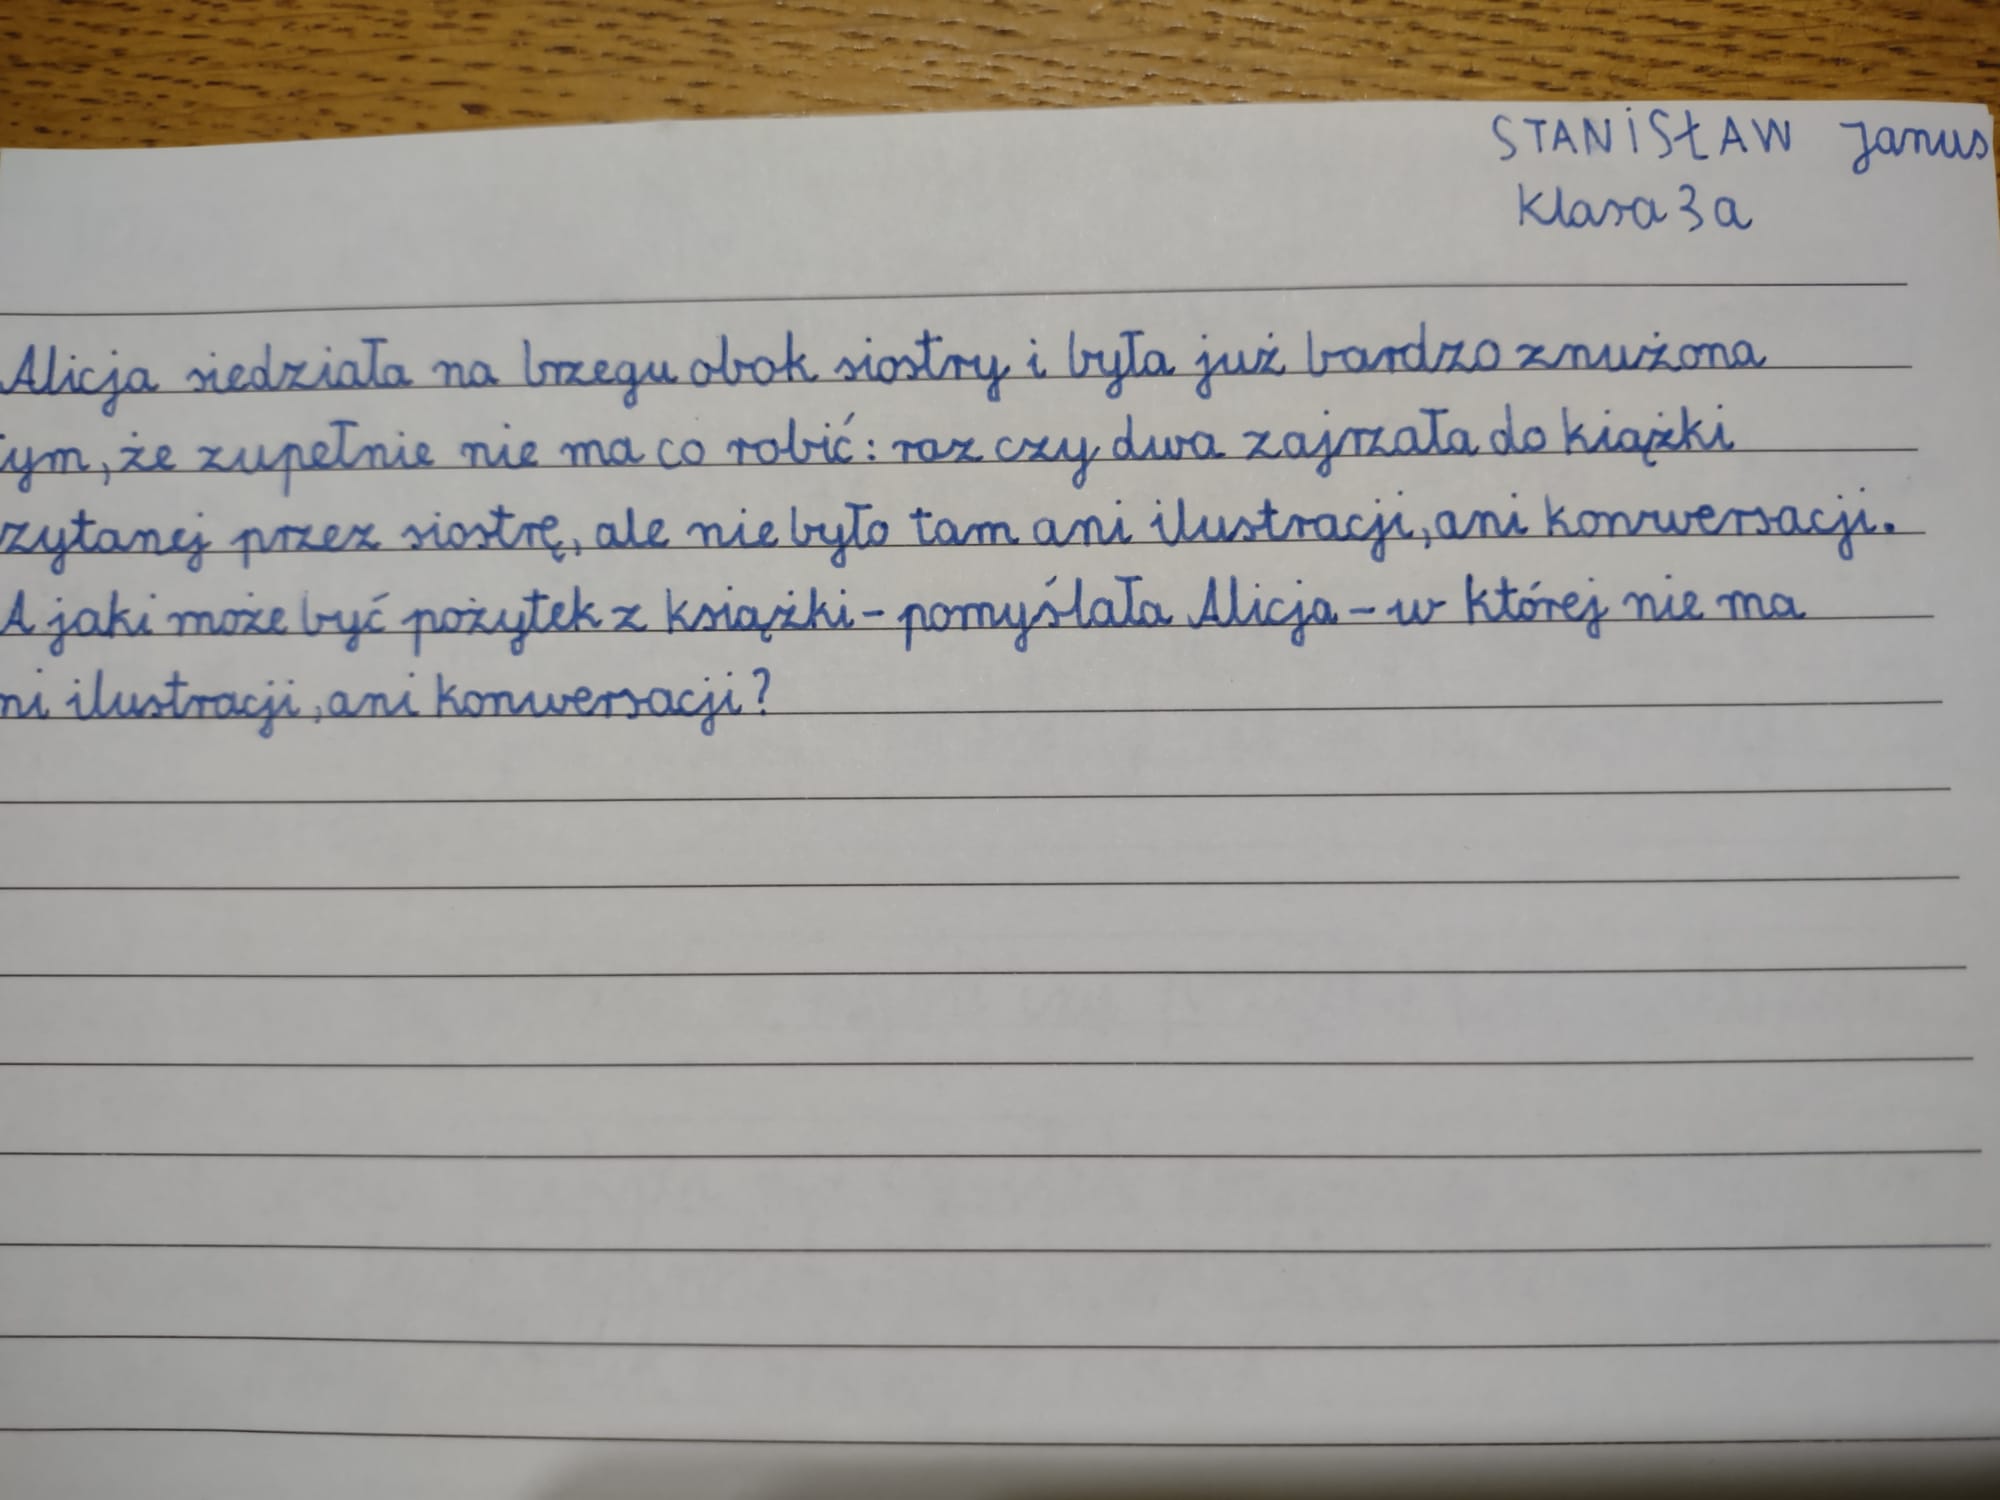 STANiSŁAW Janus
Klasa 3a
Alicja siedziała na brzegu obok siostry i była już bardzo znużona
ym, że zupełnie nie ma co robić: raz czy dwa zajrzała do kiążki
zytanej przez siostrę, ale nie było tam ani ilustracji, ani konwersacji.
A jaki może być pożytek z książki - pomyślała Alicja - w której nie ma
ni ilustracji, ani konwersacji?